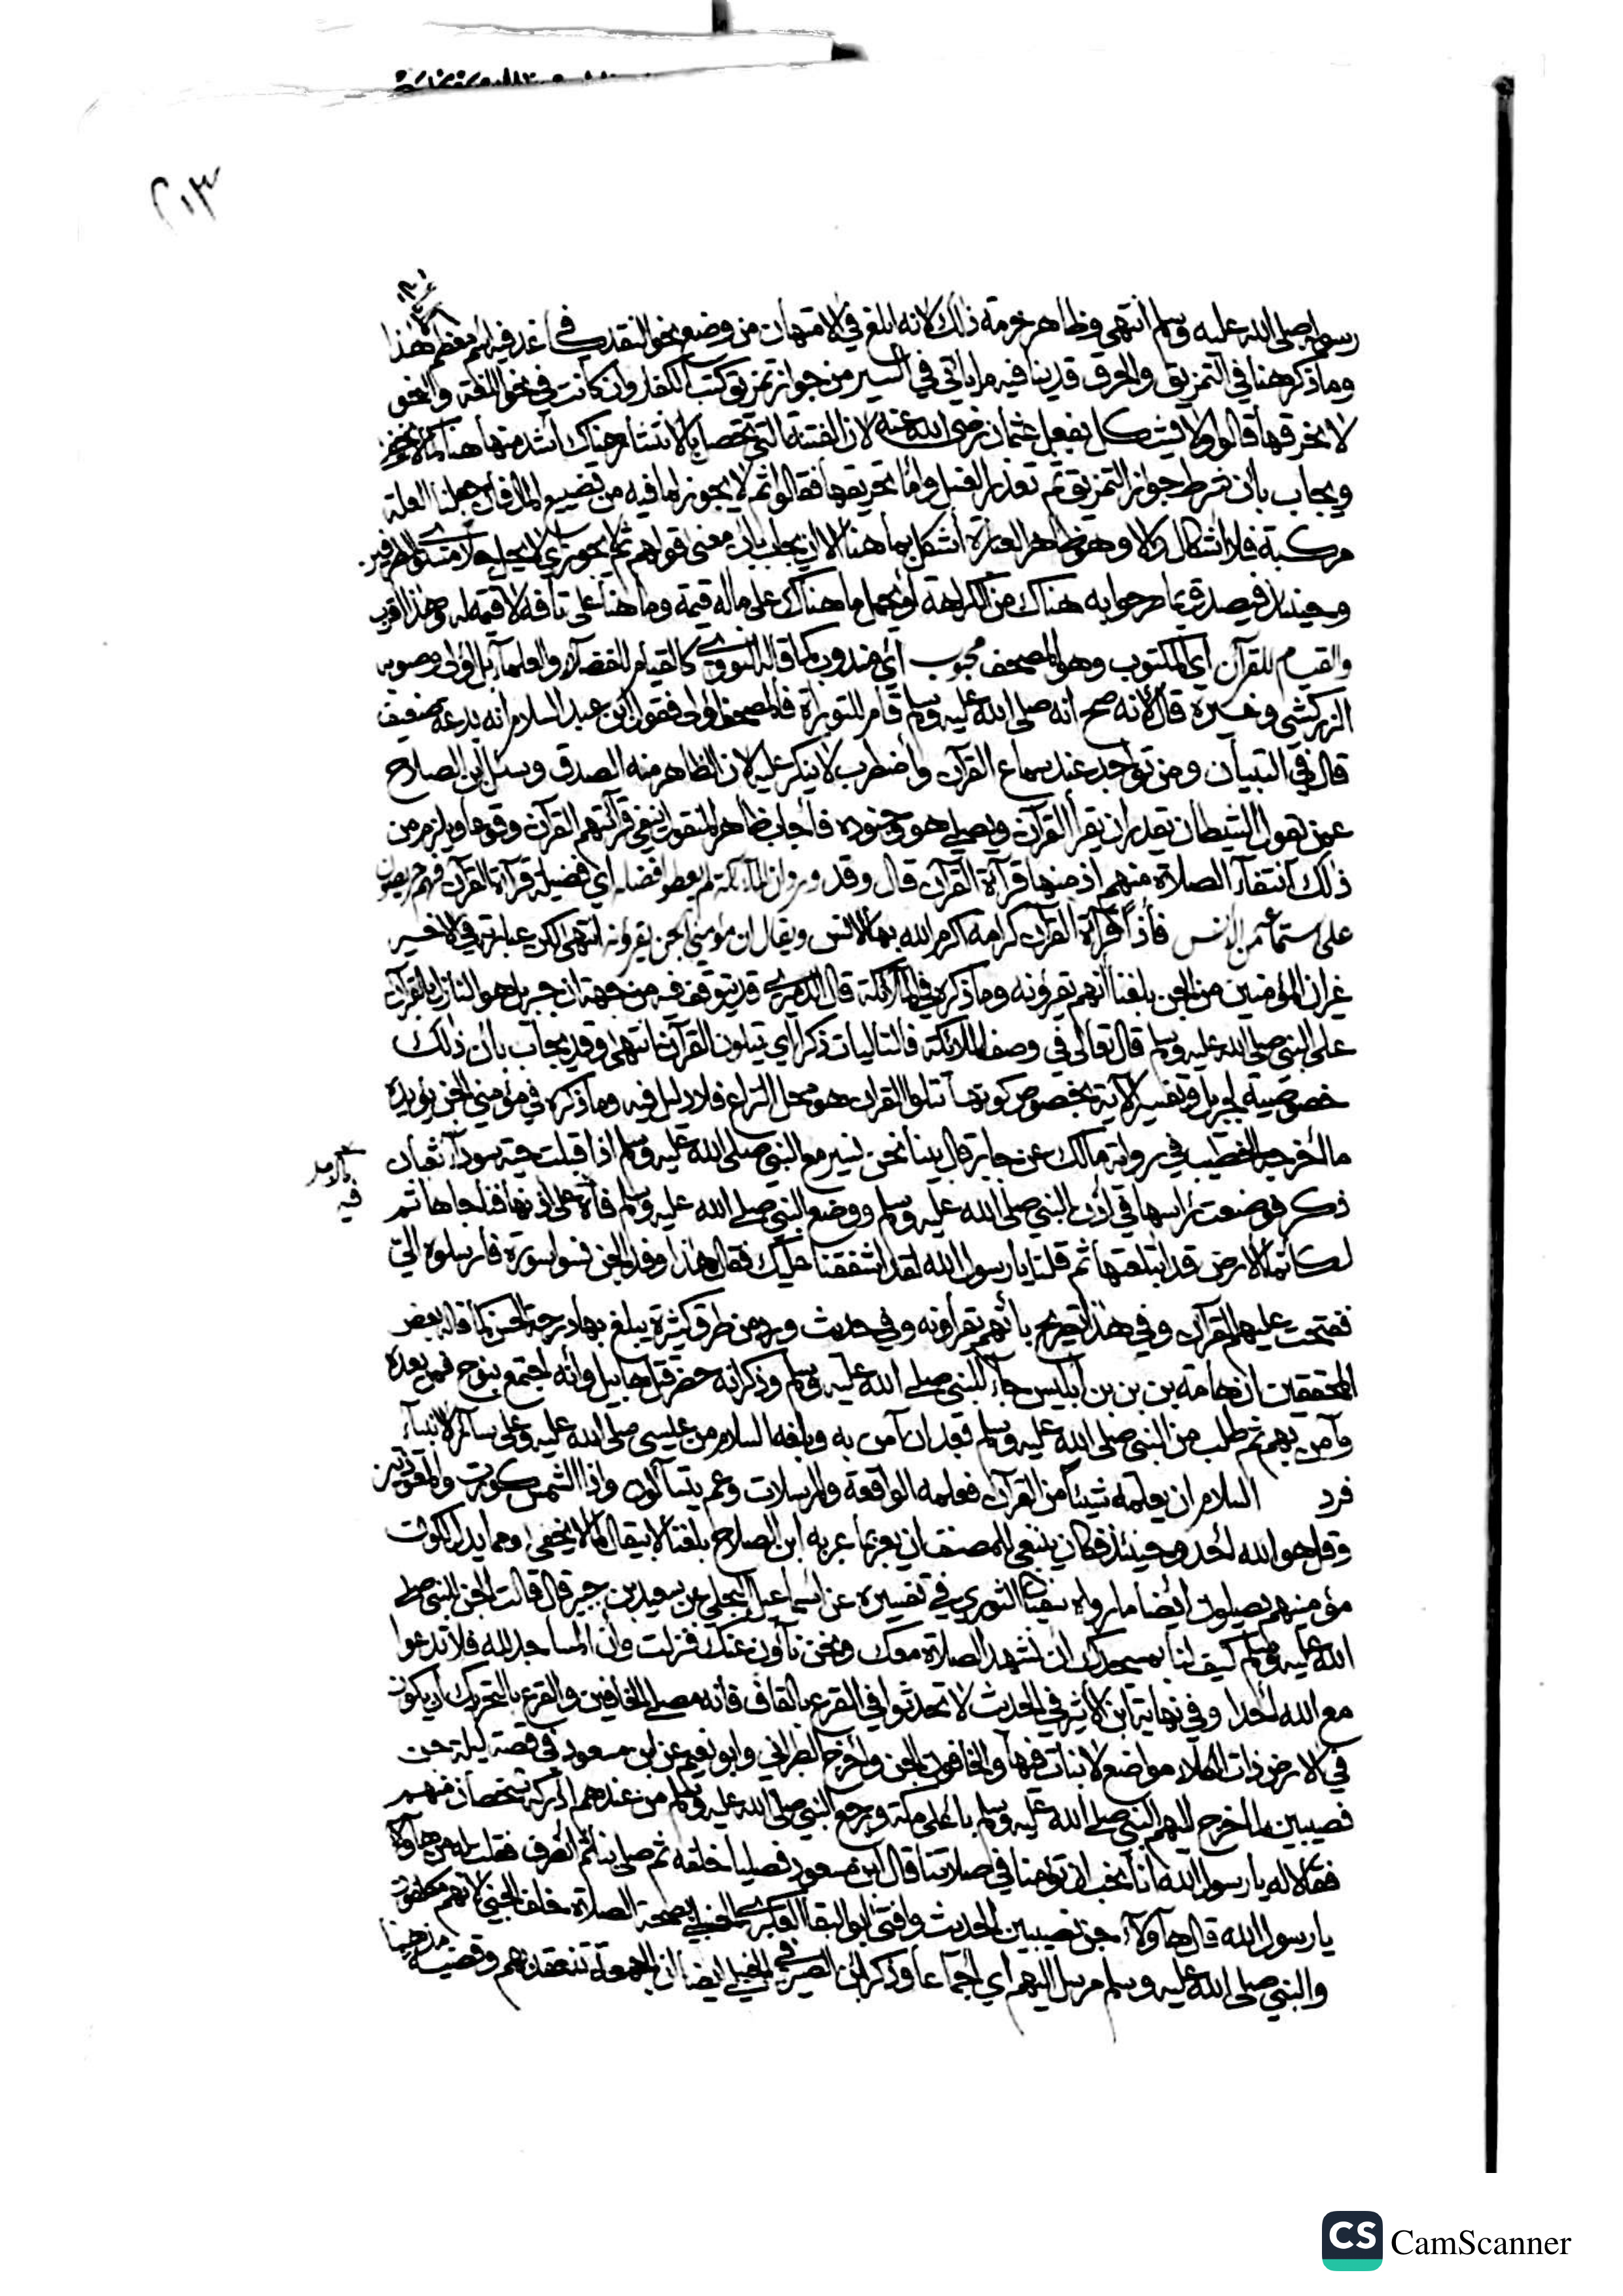 ٢٠٣
رسوله صلى الله عليه وسلم انتهى وظاهر حرمة ذلك لانه ابلغ في الامتهان من وضع نحو النقد في كاغد فيه اسم معظم هذا
وما ذكر هنا في التمزيق والحرق قد ينافيه ما ياتي في السير من جواز تمزيق كتب الكفار وان كانت في نحو اللغة والنحو
لا نحرقها قالوا ولا يشكل بفعل عثمان رضي الله عنه لان الفتنة التي تحصل بالانتشار هناك أشد منها هنا كما لا يخفى
ويجاب بأن شرط جواز التمزيق ثم تعذر الغسل وأما تحريقها فقالوا ثم لا يجوز لما فيه من تضييع المال فان جعلنا العلة
مركبة فلا اشكال والا وهو ظاهر العبارة أشكل بما هنا الا ان يجاب بأن معنى قولهم ثم لا يجوز أي لا يحل حلا مستوي الطرفين
وحينئذ فيصدق بما صرحوا به هناك من الكراهة أو يحمل ما هناك على ماله قيمة وما هنا على تافه لا قيمة له وهذا اقرب
والقيام للقرآن أي المكتوب وهو المصحف محبوب أي مندوب كما قاله النووي كالقيام للفضلاء والعلماء بل اولى وصوبه
الزركشي وغيره قال لأنه صح انه صلى الله عليه وسلم قام للتوراة فالمصحف أولى فقول ابن عبد السلام أنه بدعة ضعيف
قال في التبيان ومن تواجد عند سماع القرآن واضطرب لا ينكر عليه لان الظاهر منه الصدق وسئل ابن الصلاح
عمن يقول الشيطان يقدر ان يقرأ القرآن ويصلي هو وجنوده فأجاب ظاهر المنقول ينفي قرأتهم القرآن وقوعا ويلزم من
ذلك انتفاء الصلاة منهم اذ منها قرآة القرآن قال وقد ورد ان الملائكة لم يعطوا فضله اي فضيلة قرآة القرآن فهم حريصون
على استماعه من الانس فأذا قرآة القرآن كرامة اكرم الله بها الانس ويقال ان مؤمني الجن يقرؤنه انتهى لكن عبارته في الاخير
غير ان المؤمنين من الجن بلغنا انهم يقرؤنه وما ذكره في الملائكة قال الدميري قد يتوقف فيه من جهة ان جبريل هو النازل بالقرآن
على النبي صلى الله عليه وسلم قال تعالى في وصف الملائكة فالتاليات ذكرا اي يتلون القرآن انتهى وقد يجاب بأن ذلك
خصوصية لجبريل وتفسير الآية بخصوص كونها تتلوا القرآن هو محل النزاع فلا دليل فيه وما ذكره في مؤمني الجن يؤيده
ما أخرجه الخطيب في رواية مالك عن جابر قال بينا نحن نسير مع النبي صلى الله عليه وسلم اذ اقبلت حية سوداء ثعبان
ذكر فوضعت رأسها في أذن النبي صلى الله عليه وسلم ووضع النبي صلى الله عليه وسلم فاه على اذنها فناجاها ثم
لكأنما الارض قد ابتلعتها ثم قلنا يا رسول الله لقد اشفقنا عليك فقال هذا وفد الجن نسوا سورة فارسلوه الي
ففتحت عليهم القرآن وفي هذا تصريح بانهم يقرأونه وفي حديث ورد من طرق كثيرة يبلغ بها درجة الحسن كما قاله بعض
المحققين ان هامة بن بن بن ابليس جاء للنبي صلى الله عليه وسلم وذكر انه حضر قتل هابيل وانه اجتمع بنوح فمن بعده
وآمن بهم ثم طلب من النبي صلى الله عليه وسلم بعد ان آمن به وبلغه السلام من عيسى صلى الله عليه وعلى سائر الانبياء
فرد السلام ان يعلمه شيئا من القرآن فعلمه الواقعة والمرسلات وعم يتسآلون واذا الشمس كورت والمعوذتين
وقل هو الله أحد وحينئذ فكان ينبغي للمصنف ان يعبر بما عبر به ابن الصلاح بلغنا لا بيقال كما لا يخفى ومما يدل لكون
مؤمنيهم يصلون أيضا ما رواه سفيان الثوري في تفسيره عن اسماعيل البجلي عن سعيد بن جبير قال قالت الجن للنبي صلى
الله عليه وسلم كيف لنا بمسجدك ان نشهد الصلاة معك ونحن نآون عنك فنزلت وأن المساجد لله فلا تدعوا
مع الله أحدا وفي نهاية ابن الاثير في الحديث لا تحدثوا في القرع بالقاف فأنه مصلى الخافين والقرع بالتحريك ان يكون
في الارض ذات الكلاء مواضع لا نبات فيها والخافون الجن وأخرج الطبراني وابو نعيم عن ابن مسعود في قصة ليلة جن
نصيبين لما خرج اليهم النبي صلى الله عليه وسلم بأعلى مكة ورجع النبي صلى الله عليه وسلم من عندهم أدركه شخصان منهم
فقالا له يا رسول الله انا نحب ان تؤمنا في صلاتنا قال ابن مسعود فصليا خلفه ثم صلى بنا ثم انصرف فقلت له من هؤلاء
يا رسول الله قال هؤلاء جن نصيبين الحديث وافتى ابو البقاء العكبري الحنبلي بصحة الصلاة خلف الجني لانهم مكلفون
والنبي صلى الله عليه وسلم مرسل اليهم اي اجماعا وذكر ابن الصيرفي الحنبلي ايضا ان الجمعة تنعقد بهم وقضية مذهبنا
CS CamScanner